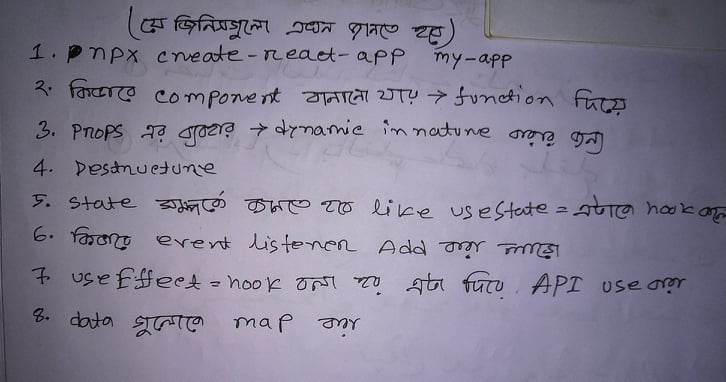 (যে জিনিসগুলো এখন জানতে হবে)
1. npx create-react-app my-app
২. কিভাবে component বানানো যায় → function দিয়ে
3. Props এর ব্যবহার → dynamic in nature করার জন্য
4. Destructure
5. state সম্পর্কে জানতে হবে like useState = এটাকে hook বলে
6. কিভাবে event listener Add করা লাগে
7. useEffect = hook বলা হয় এটা দিয়ে API use করা
8. data গুলোকে map করা